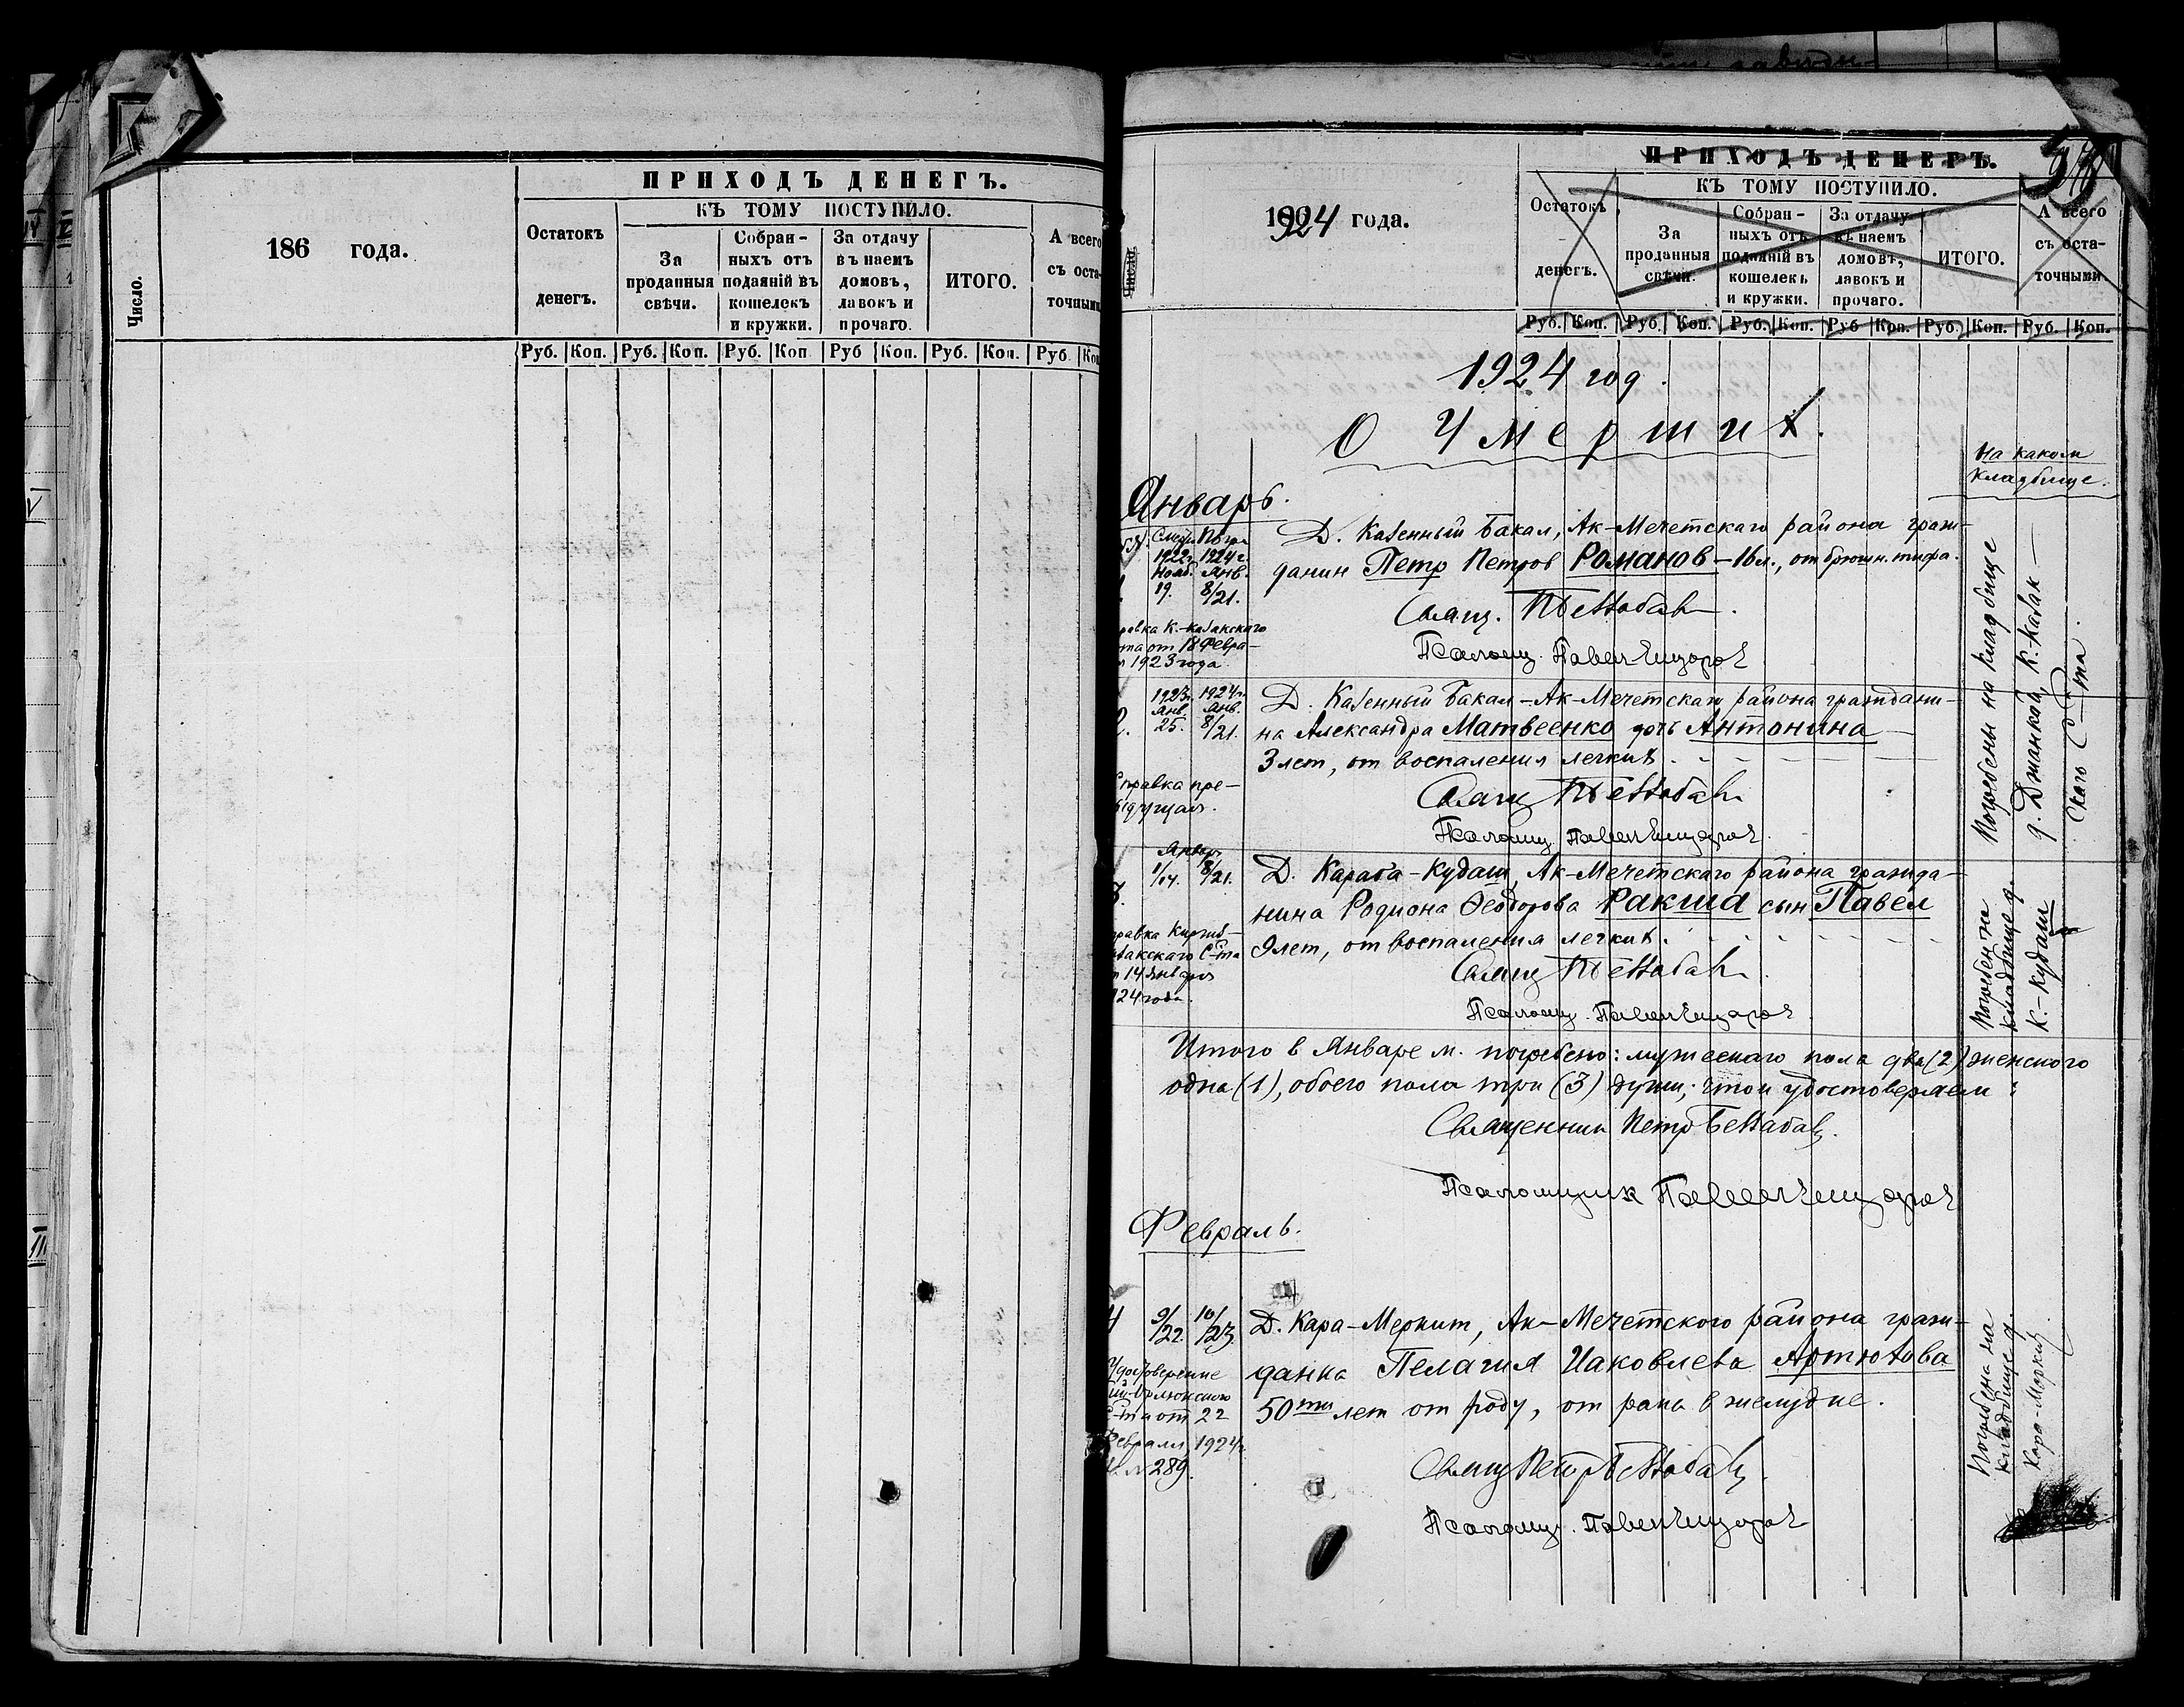 ПРИХОДЪ ДЕНЕГЪ.
КЪ ТОМУ ПОСТУПИЛО.
Число.
186 года.
Остатокъ
денегъ.
За
проданныя
свѣчи.
Собран-
ныхъ отъ
подаяній въ
кошелекъ
и кружки.
За отдачу
въ наемъ
домовъ,
лавокъ и
прочаго.
ИТОГО.
А всего
съ оста-
точными
Руб. Коп. Руб. Коп. Руб. Коп Руб Коп. Руб. Коп. Руб Коп
ПРИХОДЪ ДЕНЕГЪ.
КЪ ТОМУ ПОСТУПИЛО.
Число.
1924 года.
Остатокъ
денегъ.
За
проданныя
свѣчи.
Собран-
ныхъ отъ
подаяній въ
кошелекъ
и кружки.
За отдачу
въ наемъ
домовъ,
лавокъ и
прочаго.
ИТОГО.
А всего
съ оста-
точными
Руб. Коп. Руб. Коп. Руб. Коп. Руб Коп. Руб. Коп. Руб. Коп.
1924 год.
О Умерших.
На каком
кладбище.
Январь.
1922г. 1924г.
Нояб. Янв.
19. 8/21.
Д. Казенный Бакал, Ак-Мечетскаго района граж-
данин Петр Петров Романов - 16 л., от брюшн. тифа.
Свящ.
Псаломщ. Павел
К.-Казакскаго
от 18 Февра-
1923 года
Погребены на кладбище
д. Джанкой, К.-Казак-
скаго С-та.
2. 1923г. 1924г.
Янв. Янв.
25. 8/21.
Д. Казенный Бакал - Ак-Мечетскаго района граждани-
на Александра Матвеенко дочь Антонина
3 лет, от воспаления легких.
Свящ
Псаломщ Павел
Справка пре-
дыдущая.
Январ
1/14. 8/21.
Д. Караба-Кудаш, Ак-Мечетскаго района гражда-
нина Родиона Феодорова Ракша сын Павел
9 лет, от воспаления легких.
Свящ
Псаломщ. Павел
С-та
14 января
24 года.
Погребен на
кладбище д.
К.-Кудаш
Итого в Январе м. погребено: мужескаго пола два (2) женского
одна (1), обоего пола три (3) души; что и удостоверяем:
Священник Петр
Псаломщик Павел
Февраль.
4 9/22. 10/23
Д. Кара-Меркит, Ак-Мечетского района граж-
данка Пелагия Иаковлева Артюхова
50ти лет от роду, от рака в желудке.
Свящ Петр
Псаломщ. Павел
Удостоверение
С-та от 22
Февраля 1924г.
289.
Погребена на
кладбище д.
Кара-Меркит